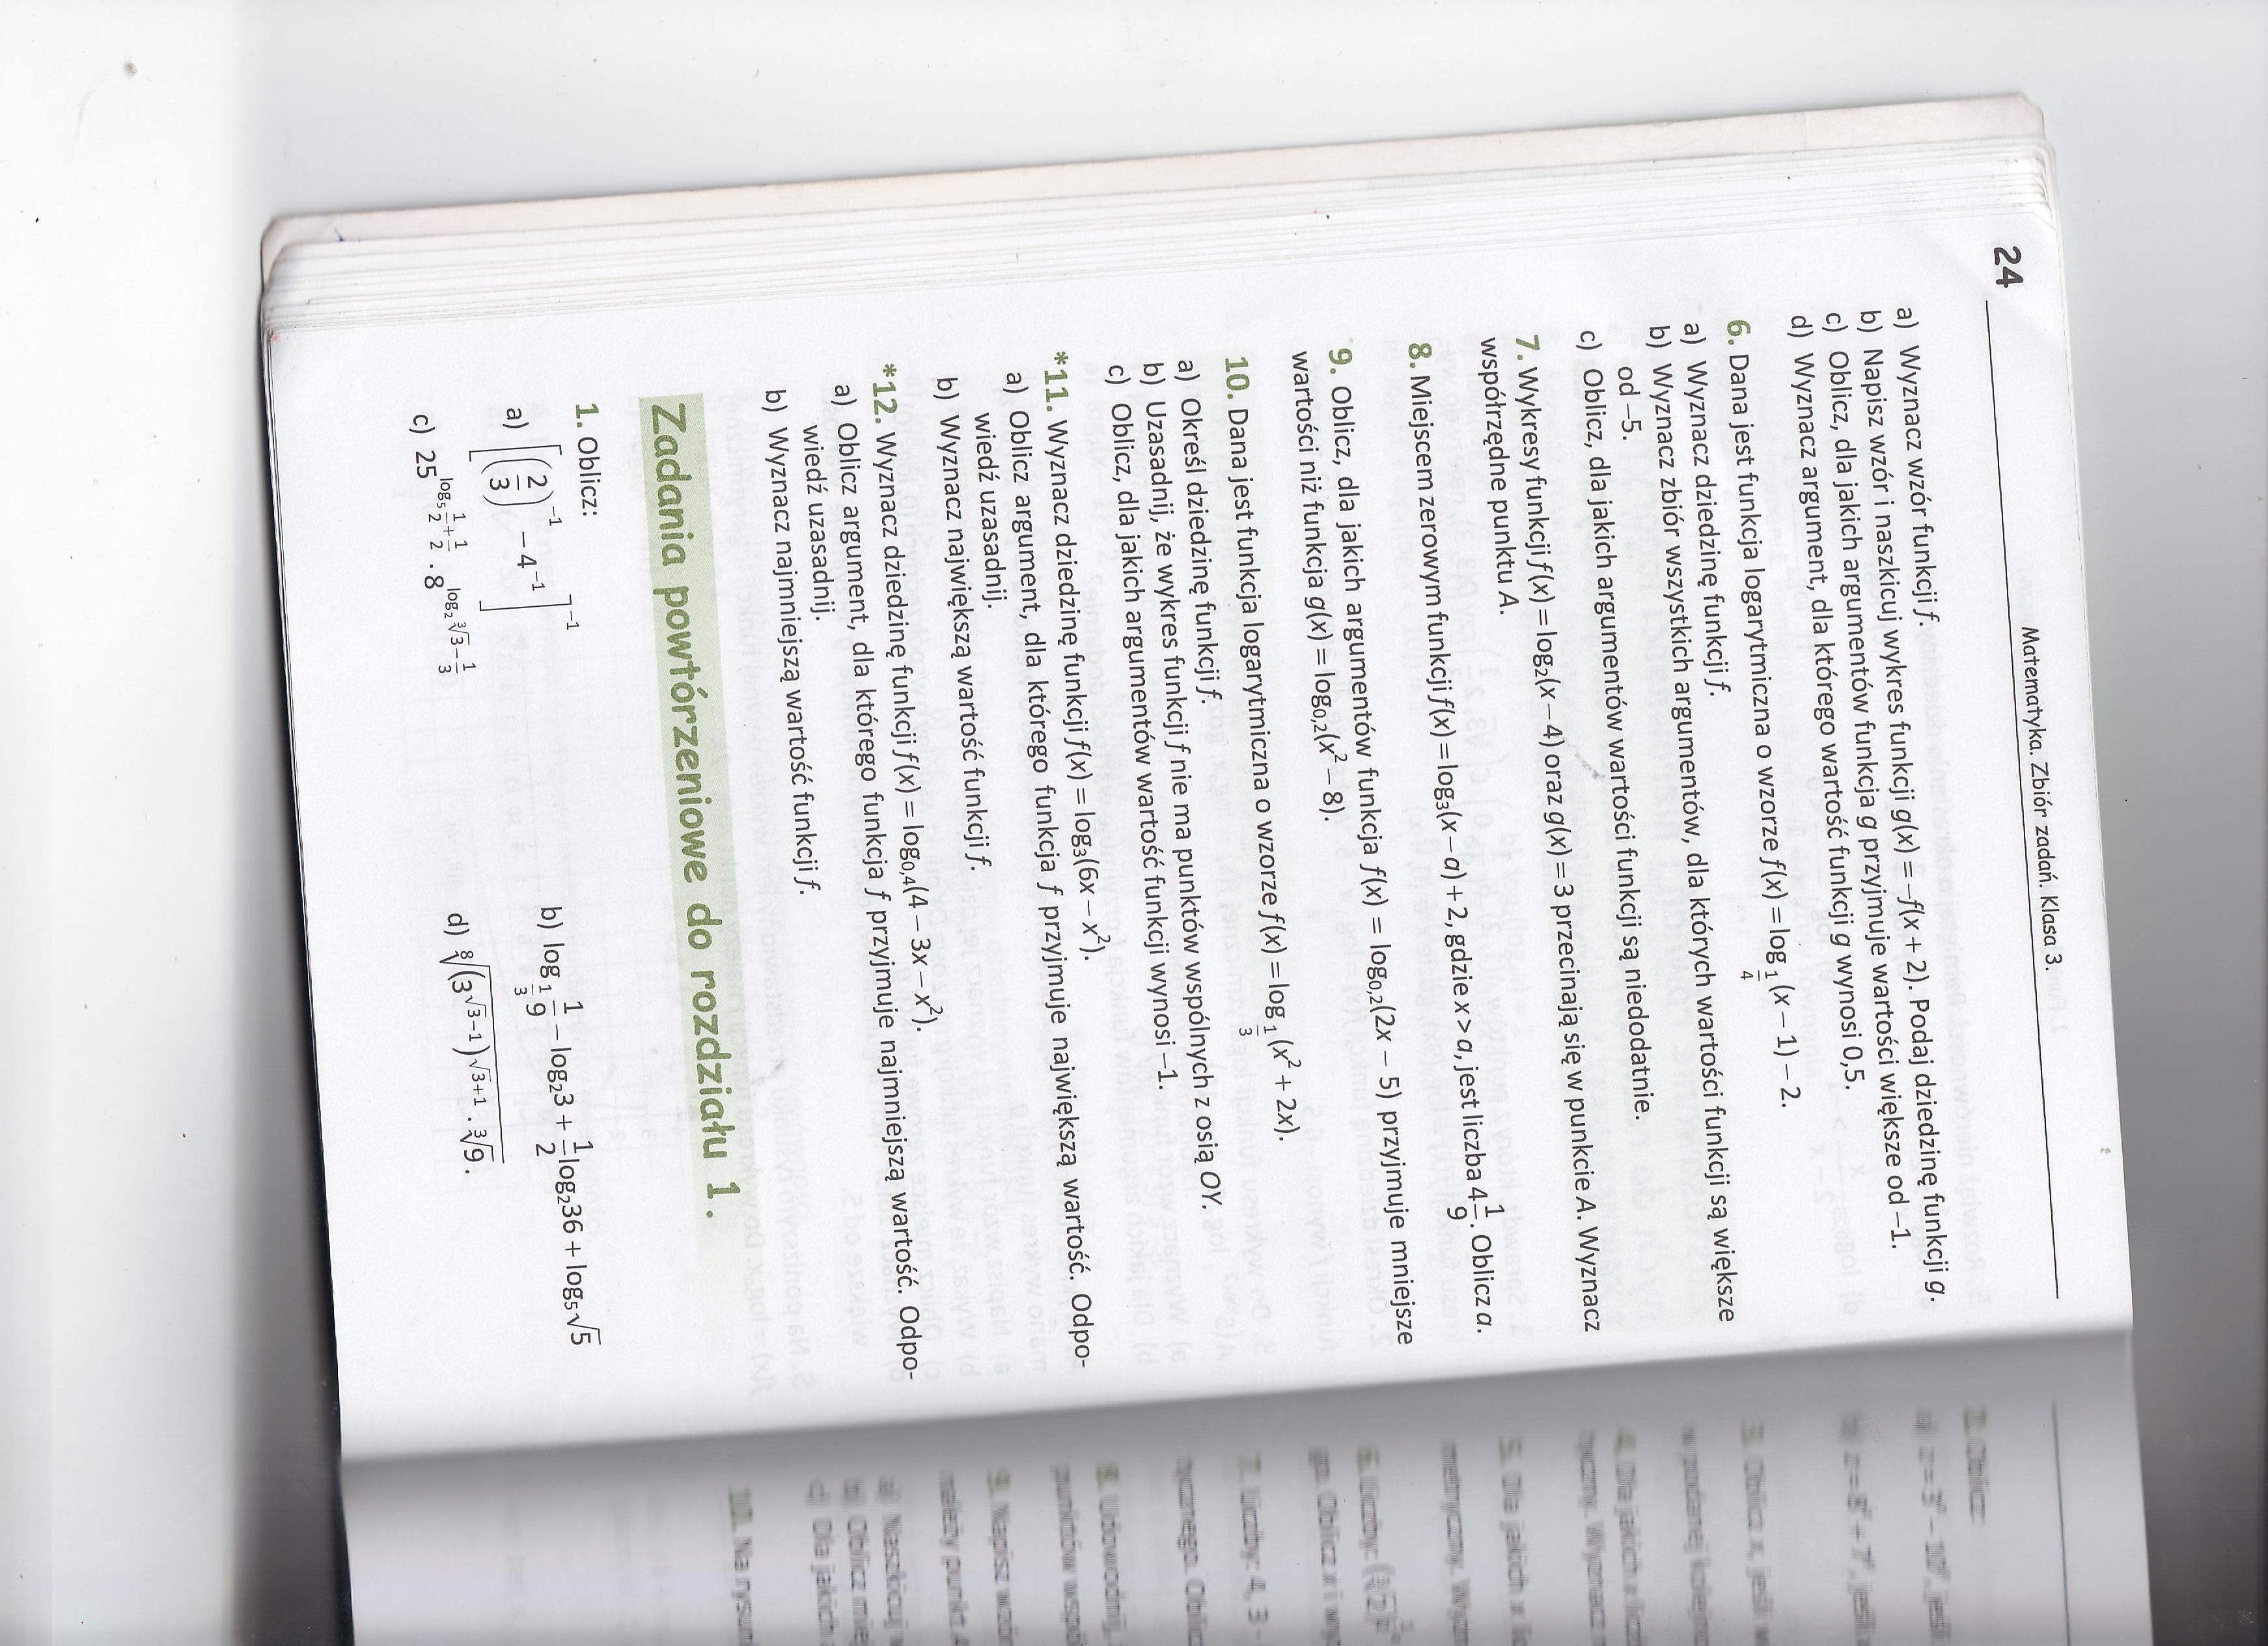 24
Matematyka. Zbiór zadań. Klasa 3.
a) Wyznacz wzór funkcji f.
b) Napisz wzór i naszkicuj wykres funkcji g(x) = –f(x + 2). Podaj dziedzinę funkcji g.
c) Oblicz, dla jakich argumentów funkcja g przyjmuje wartości większe od –1.
d) Wyznacz argument, dla którego wartość funkcji g wynosi 0,5.
6. Dana jest funkcja logarytmiczna o wzorze f(x) = log_{1/4}(x – 1) – 2.
a) Wyznacz dziedzinę funkcji f.
b) Wyznacz zbiór wszystkich argumentów, dla których wartości funkcji są większe
od –5.
c) Oblicz, dla jakich argumentów wartości funkcji są niedodatnie.
7. Wykresy funkcji f(x) = log₂(x – 4) oraz g(x) = 3 przecinają się w punkcie A. Wyznacz
współrzędne punktu A.
8. Miejscem zerowym funkcji f(x) = log₃(x – a) + 2, gdzie x > a, jest liczba 4 1/9. Oblicz a.
9. Oblicz, dla jakich argumentów funkcja f(x) = log₀,₂(2x – 5) przyjmuje mniejsze
wartości niż funkcja g(x) = log₀,₂(x² – 8).
10. Dana jest funkcja logarytmiczna o wzorze f(x) = log_{1/3}(x² + 2x).
a) Określ dziedzinę funkcji f.
b) Uzasadnij, że wykres funkcji f nie ma punktów wspólnych z osią OY.
c) Oblicz, dla jakich argumentów wartość funkcji wynosi –1.
*11. Wyznacz dziedzinę funkcji f(x) = log₃(6x – x²).
a) Oblicz argument, dla którego funkcja f przyjmuje największą wartość. Odpo-
wiedź uzasadnij.
b) Wyznacz największą wartość funkcji f.
*12. Wyznacz dziedzinę funkcji f(x) = log₀,₄(4 – 3x – x²).
a) Oblicz argument, dla którego funkcja f przyjmuje najmniejszą wartość. Odpo-
wiedź uzasadnij.
b) Wyznacz najmniejszą wartość funkcji f.
Zadania powtórzeniowe do rozdziału 1.
1. Oblicz:
a) [(2/3)⁻¹ – 4⁻¹]⁻¹ b) log_{1/3} 1/9 – log₂3 + 1/2 log₂36 + log₅√5
c) 25^{log₅ 1/2 + 1/2} · 8^{log₂ ∛3 – 1/3} d) ⁸√((3^{√3–1})^{√3+1} · ∛9).
2. Oblicz:
3. Oblicz x, jeśli
w podanej kolejno
4. Dla jakich x licz
5. Dla jakich x lic
metryczny. Wyzn
6. Liczby:
gp. Oblicz x i wy
7. Liczby: 4, 3 -
8. Udowodnij,
punktów wspó
9. Napisz wzór
należy punkt A
a) Naszkicuj w
b) Oblicz miej
c) Dla jakich
10. Na rysun